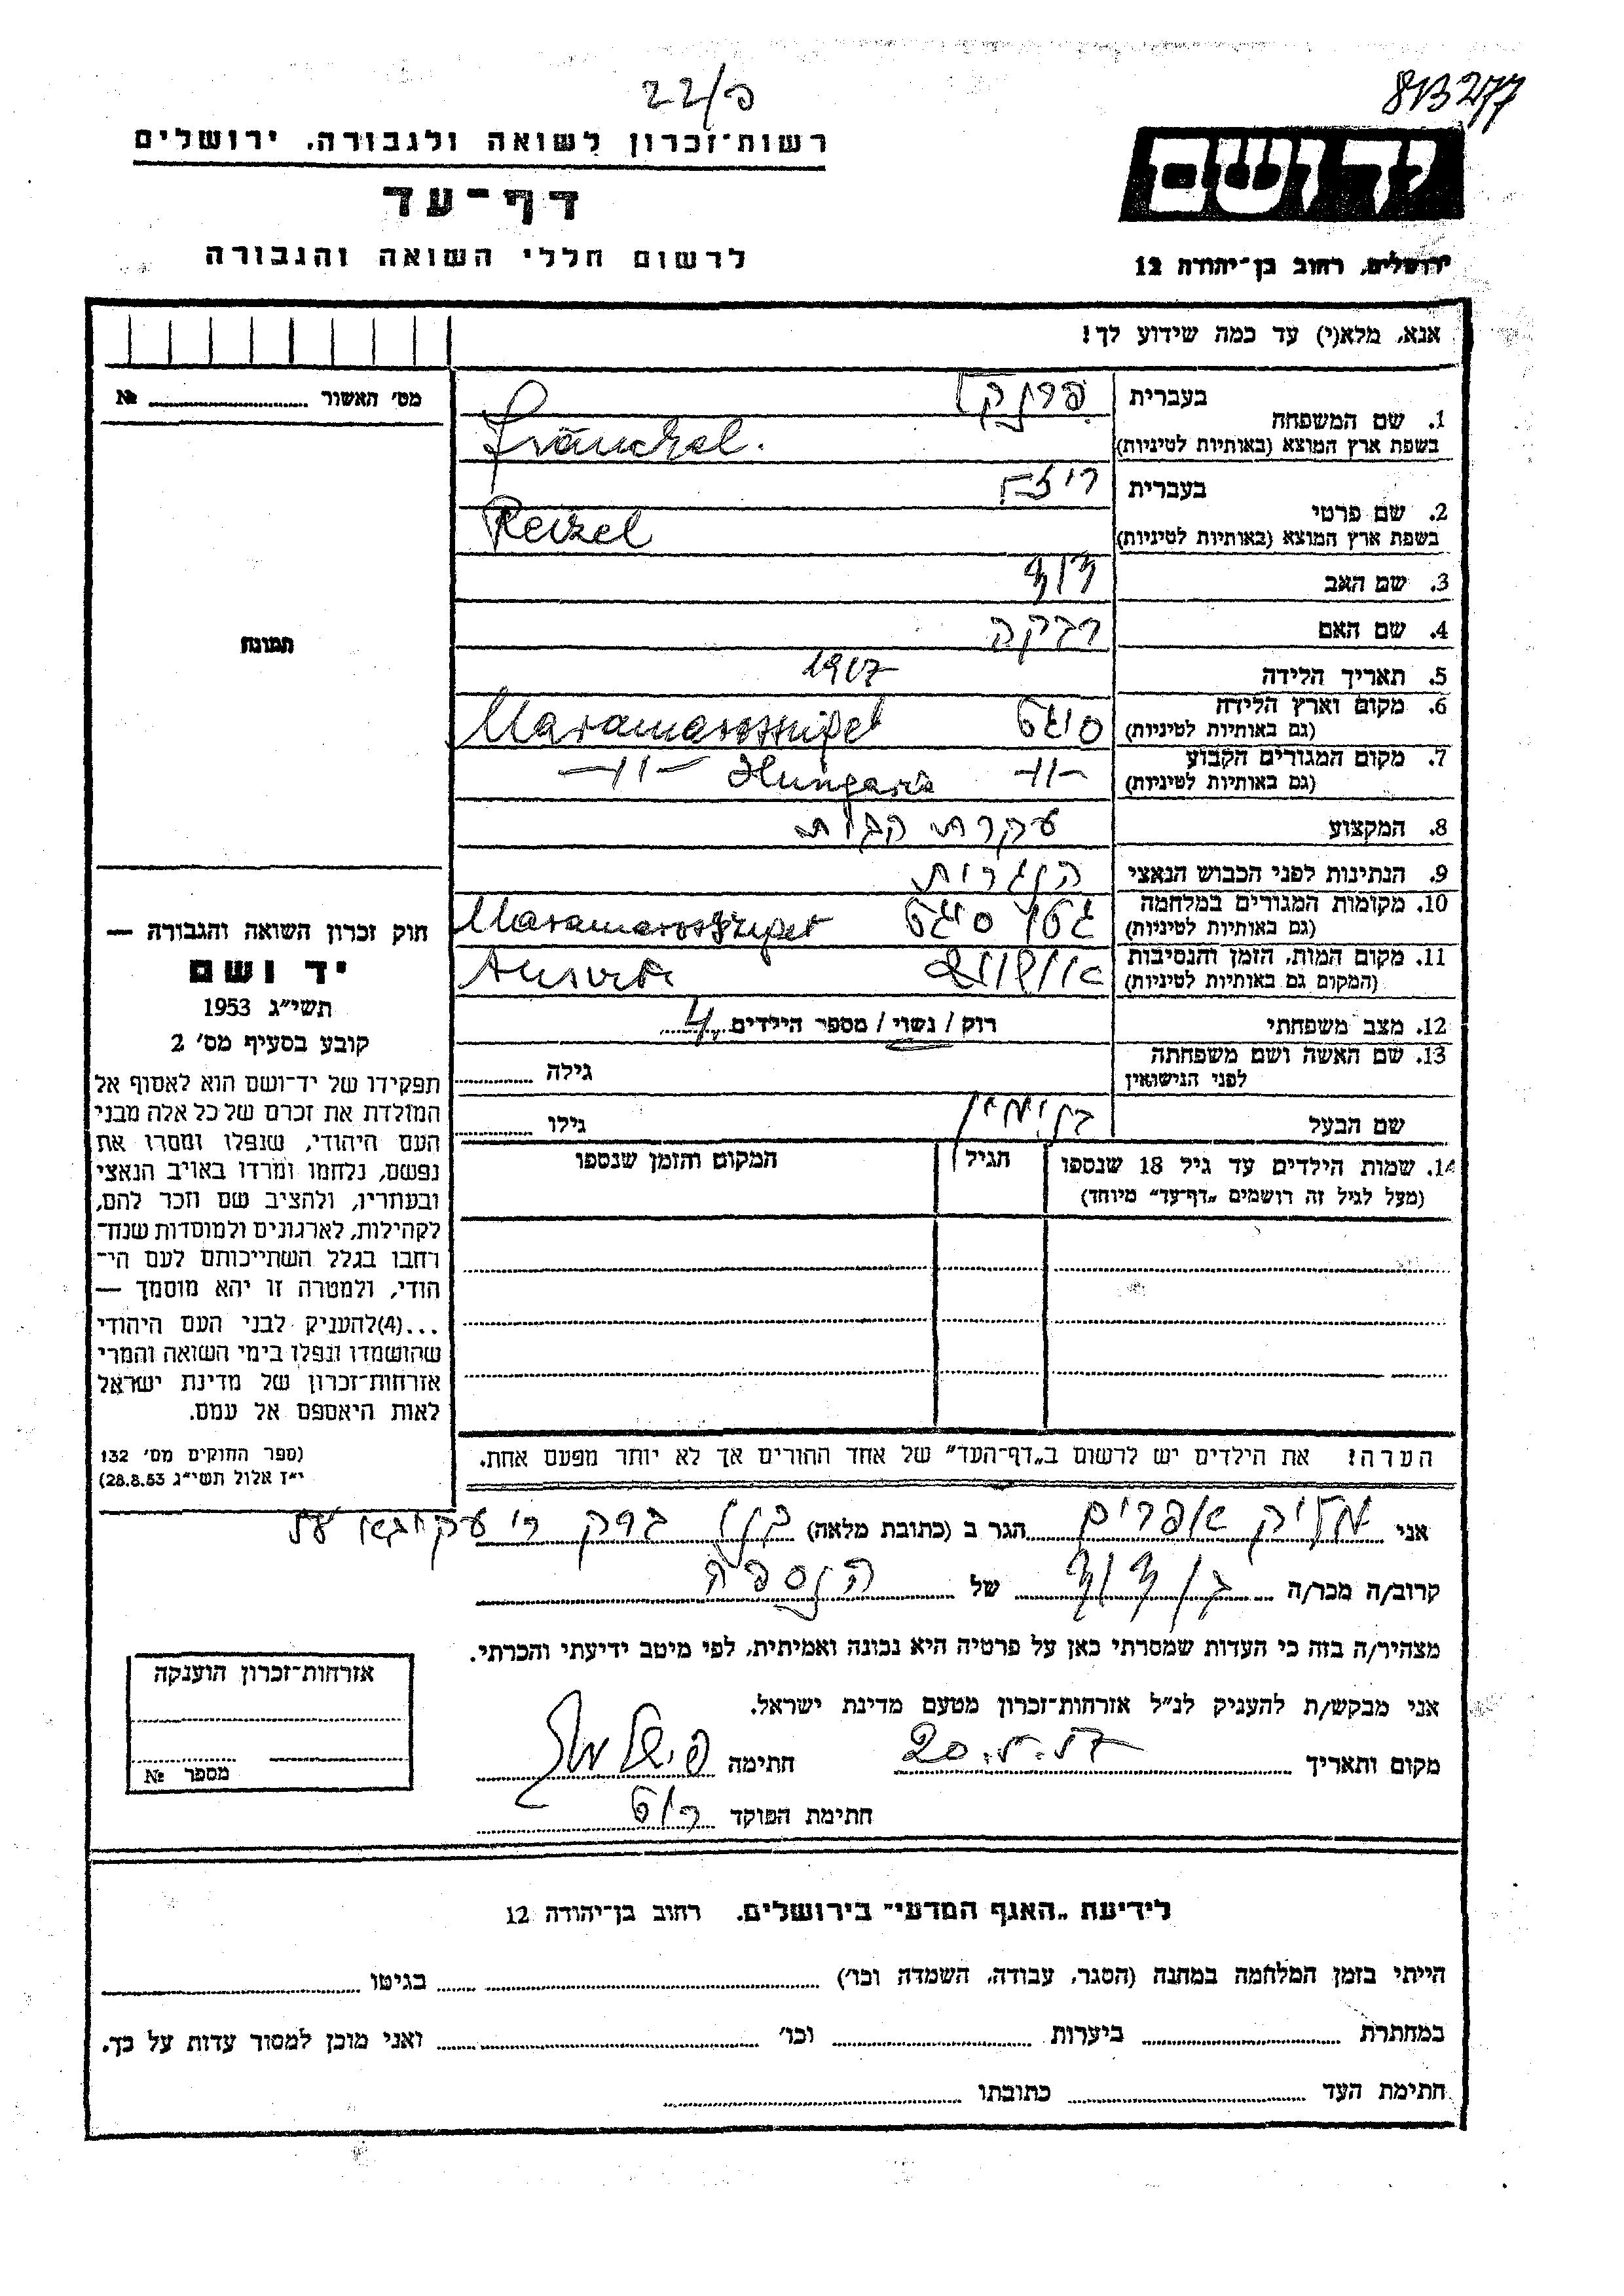 פ/22
813277
רשות־זכרון לשואה ולגבורה, ירושלים
יד ושם
דף־עד
לרשום חללי השואה והגבורה
ירושלים, רחוב בן־יהודה 12
אנא, מלא(י) עד כמה שידוע לך!
מס׳ האשור № 
1. שם המשפחה
בעברית פרנקל
בשפת ארץ המוצא (באותיות לטיניות) Fränckel.
2. שם פרטי
בעברית ריזל
בשפת ארץ המוצא (באותיות לטיניות) Reizel
3. שם האב דוד
4. שם האם רבקה
5. תאריך הלידה 1917
6. מקום וארץ הלידה (גם באותיות לטיניות) סיגט Maramarosssziget
7. מקום המגורים הקבוע (גם באותיות לטיניות) -"- Hungaria -"-
8. המקצוע עקרת הבית
9. הנתינות לפני הכבוש הנאצי הונגרית
10. מקומות המגורים במלחמה (גם באותיות לטיניות) גטו סיגט Maramarossziget
11. מקום המות, הזמן והנסיבות (המקום גם באותיות לטיניות)
12. מצב משפחתי רווק / נשוי / מספר הילדים 4
13. שם האשה ושם משפחתה לפני הנישואין גילה
שם הבעל בנימין גילו
14. שמות הילדים עד גיל 18 שנספו (מעל לגיל זה רושמים „דף־עד״ מיוחד) הגיל המקום והזמן שנספו
הערה! את הילדים יש לרשום ב„דף־העד״ של אחד ההורים אך לא יותר מפעם אחת.
תמונה
חוק זכרון השואה והגבורה —
יד ושם
תשי״ג 1953
קובע בסעיף מס׳ 2
תפקידו של יד־ושם הוא לאסוף אל
המולדת את זכרם של כל אלה מבני
העם היהודי, שנפלו ומסרו את
נפשם, נלחמו ומרדו באויב הנאצי
ובעוזריו, ולהציב שם וזכר להם,
לקהילות, לארגונים ולמוסדות שנח־
רבו בגלל השתייכותם לעם הי־
הודי, ולמטרה זו יהא מוסמך —
...(4) להעניק לבני העם היהודי
שהושמדו ונפלו בימי השואה והמרי
אזרחות־זכרון של מדינת ישראל
לאות היאספם אל עמם.
(ספר החוקים מס׳ 132
י״ז אלול תשי״ג 28.8.53)
אני אפרים הגר ב (כתובת מלאה) בני ברק
קרוב/ה מכר/ה בן דוד של הנספה
מצהיר/ה בזה כי העדות שמסרתי כאן על פרטיה היא נכונה ואמיתית, לפי מיטב ידיעתי והכרתי.
אני מבקש/ת להעניק לנ״ל אזרחות־זכרון מטעם מדינת ישראל.
מקום ותאריך חתימה
חתימת הפוקד
אזרחות־זכרון הוענקה
מספר №
לידיעת „האגף המדעי״ בירושלים. רחוב בן־יהודה 12
הייתי בזמן המלחמה במחנה (הסגר, עבודה, השמדה וכו׳) בגיטו
במחתרת ביערות וכו׳ ואני מוכן למסור עדות על כך.
חתימת העד כתובתו